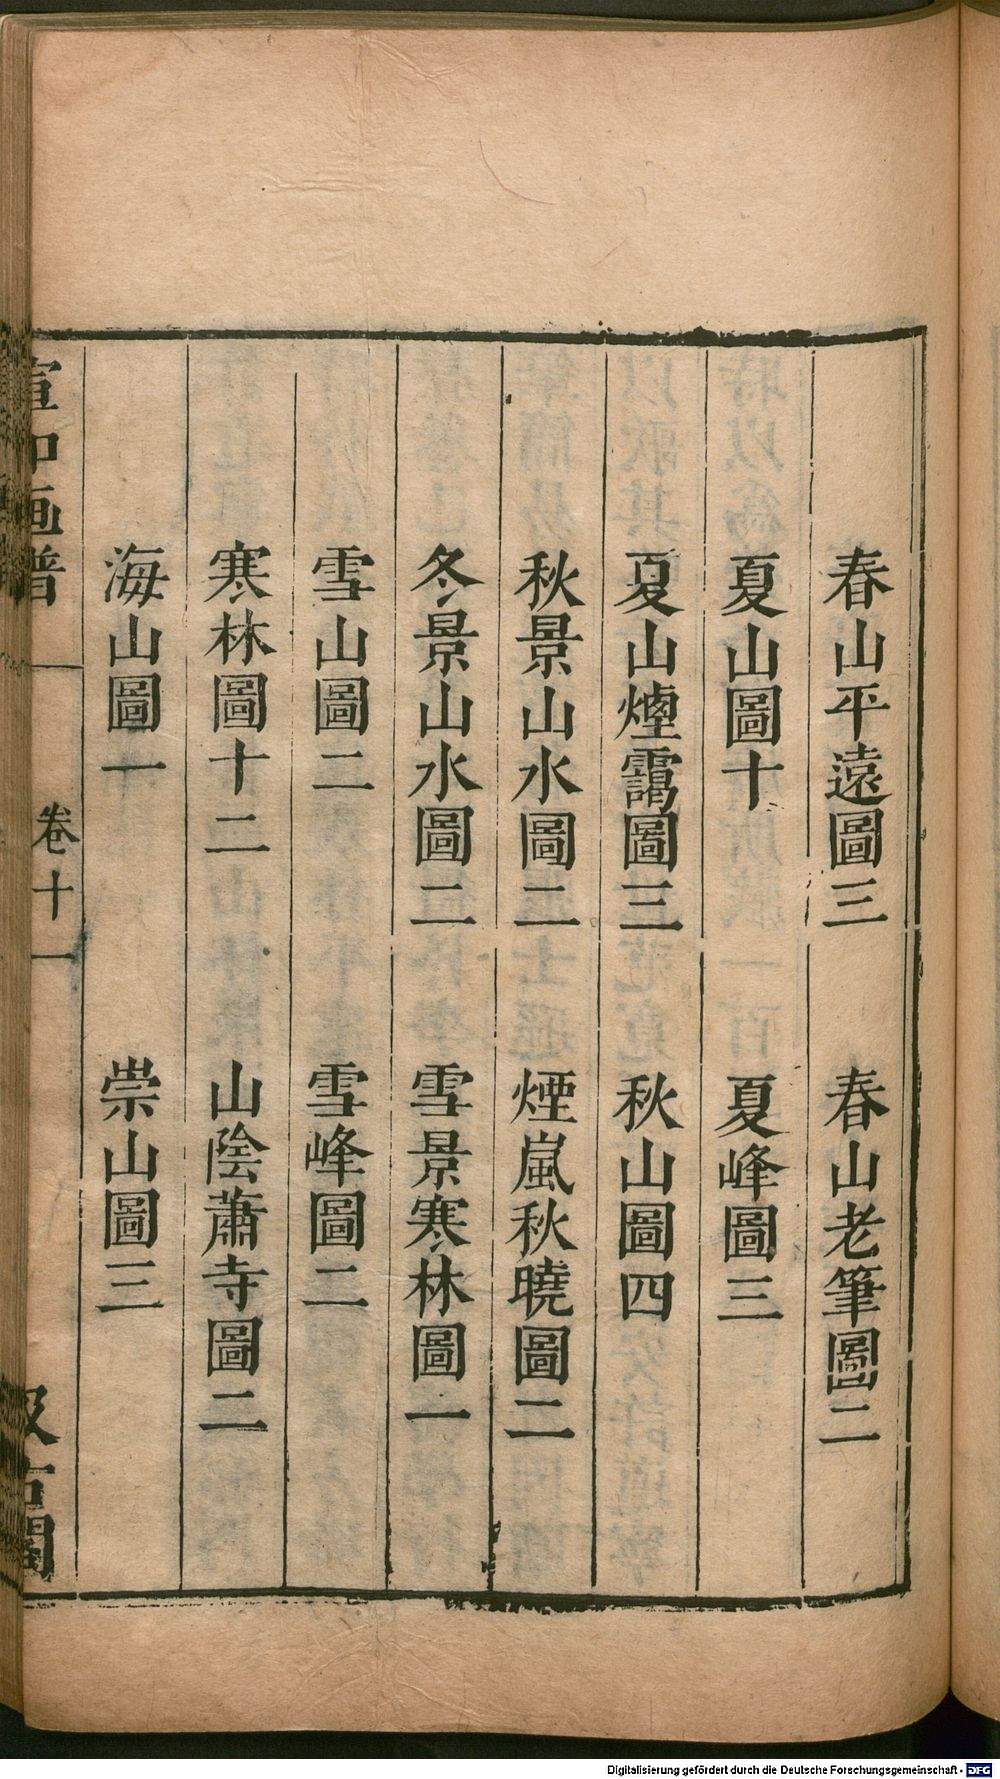 春山平遠圖三　春山老筆圖二
夏山圖十　夏峰圖三
夏山煙靄圖三　秋山圖四
秋景山水圖二　煙嵐秋曉圖二
冬景山水圖二　雪景寒林圖一
雪山圖二　雪峰圖二
寒林圖十二　山陰蕭寺圖二
海山圖一　崇山圖三
宣和画譜　卷十一　汲古閣
Digitalisierung gefördert durch die Deutsche Forschungsgemeinschaft - DFG